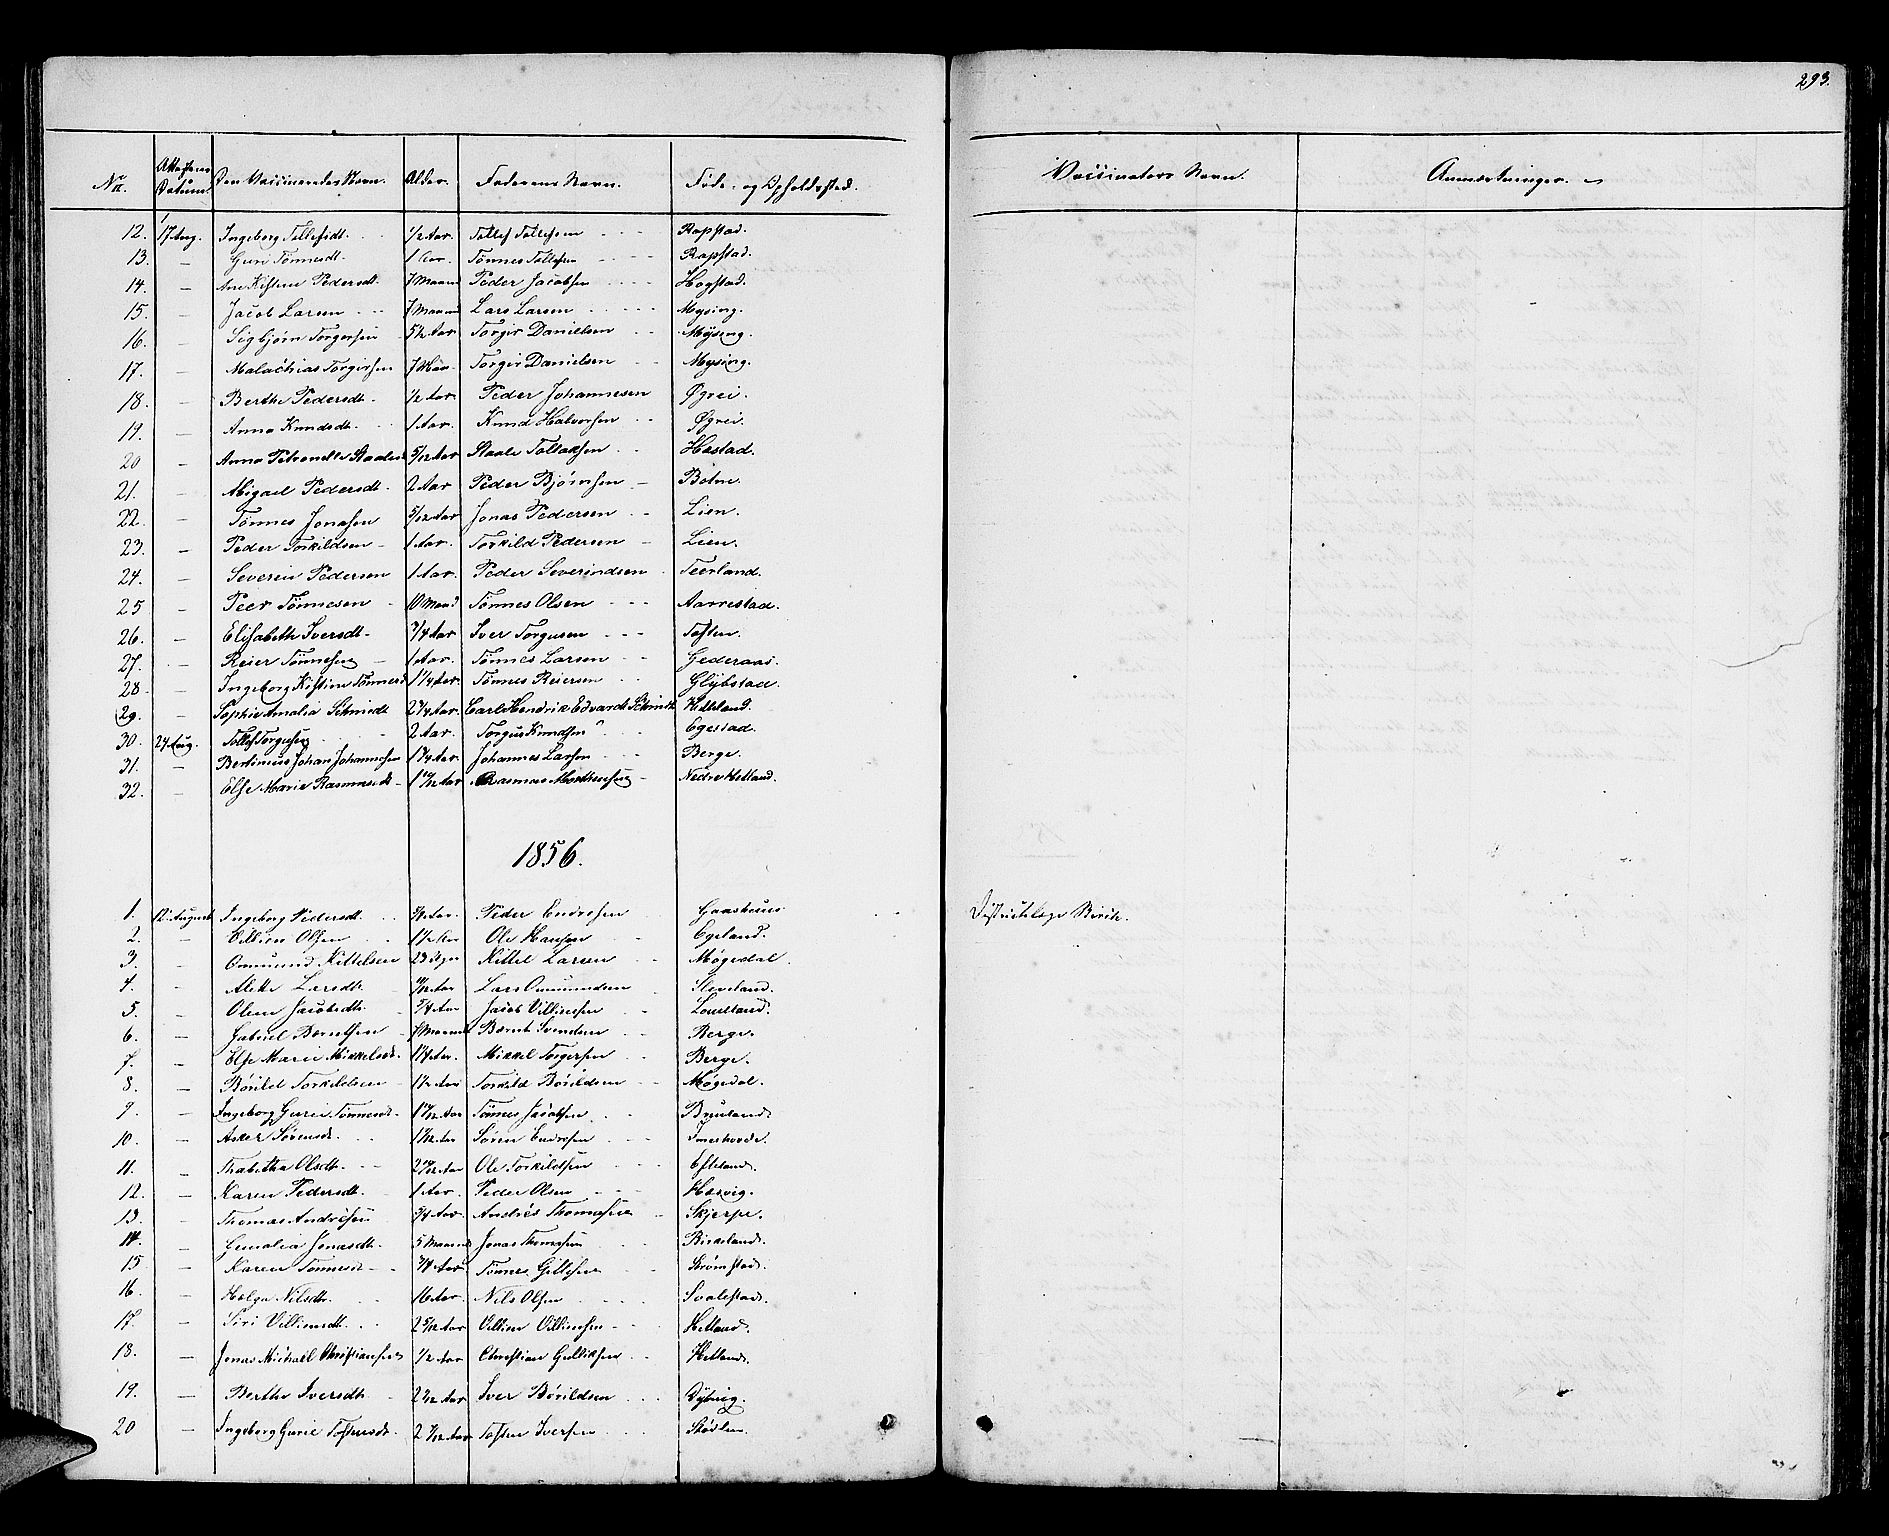 293.
No. Attestens Datum. Den Vaccineredes Navn. Alder. Faderens Navn. Føde- og Opholdssted. Vaccinators Navn. Anmærkninger.
12. 17 Aug. Ingeborg Tollefsdt. 1/2 Aar. Tollef Tollefsen Rapstad.
13. — Guri Tønnesdt. 1 Aar. Tønnes Tollefsen Rapstad.
14. — Ane Kistine Pedersdt. 7 Maaned Peder Jacobsen Hogstad.
15. — Jacob Larsen 7 Maaned Lars Larsen Mysing.
16. — Sigbjørn Torgersen 5 1/2 Aar. Torgir Danielsen Mÿsing.
17. — Malachias Torgirsen 7 Maan. Torgir Danielsen Mysing.
18. — Berthe Pedersdt. 1/2 Aar. Peder Johannesen Øgrei.
19. — Anna Knudsdt. 1 Aar. Knud Halvorsen Øgrei.
20 — Anna Petronelle Staalesd 5/12 Aar Staale Tollaksen Hæstad.
21. — Abigael Pedersdt. 2 Aar. Peder Bjørnsen Botne.
22. — Tønnes Jonasen 5/12 Aar Jonas Pedersen Lien.
23. — Peder Torkildsen 1 Aar. Torkild Pedersen Lien.
24. — Severin Pedersen 1 Aar. Peder Severindsen Teerland.
25 — Peer Tønnesen 10 Maand Tønnes Olsen Aarrestad.
26. — Elisabeth Iversdt. 3/4 Aar. Iver Torgusen Toften.
27. — Reier Tønnesen 1 Aar. Tønnes Larsen Gederaas.
28. — Ingeborg Kistine Tønnesd 1 1/4 Aar. Tønnes Reiersen Glÿbstad.
29. — Sophie Amalia Schmidt 2 1/4 Aar. Carl Hendrik Edvardt Schmidt Hetland.
30. 24 Aug. Tollef Torgusen 2 Aar. Torgus Knudsen Egestad.
31. — Bertinius Johan Johannesen 1 1/4 Aar. Johannes Larsen Berge.
32. — Else Marie Rasmusdt. 1 10/12 Aar Rasmus Mortensen Nedre Hetland.
1856.
1. 12. August Ingeborg Pedersdt. 3/4 Aar. Peder Endresen Gaashuus Districtslæge Birch.
2. — Villien Olsen 1 1/2 Aar Ole Hansen Egeland.
3. — Ommund Kittelsen 23 Uger Kittel Larsen Møgedal.
4. — Alette Larsdt. Aar Lars Ommundsen Sleveland.
5. — Olene Jacobsdt. 5/4 Aar Jacob Villiensen
6. — Gabriel Berntsen 7 Maaned Bernt Svendsen Berge.
7. — Else Marie Mikkelsdt. 1 1/4 Aar. Mikkel Torgersen Berge.
8. — Børild Torkildsen 1 1/2 Aar Torkild Børildsen Møgedal.
9. — Ingeborg Gurie Tønnesdt. 1 10/12 Aar Tønnes Jacobsen Bruland.
10. — Asker Sørensdt. Aar Søren Endresen
11. — Thabitha Olsdt. 2 Aar Ole Torkildsen Efteland.
12. — Karen Pedersdt. 1 Aar. Peder Olsen Hæsvig.
13. — Thomas Andrésen 3/4 Aar. Andrés Thomasen Skjerpe.
14. — Gunalia Jonasdt. 5 Maaned Jonas Thomasen Birkeland.
15 — Karen Tønnesdt. 3/4 Aar Tønnes Gittesen Strømstad.
16. — Helga Nilsdt. 16 Aar. Nils Olsen Svalestad.
17. — Siri Villiensdt. 2 5/12 Aar Villien Villiensen Hetland.
18. — Jonas Michaël Christiansen 1/2 Aar Christian Gulliksen Hetland.
19. — Berthe Iversdt. 2 Aar Iver Børildsen Dÿbvig.
20 — Ingeborg Gurie Tostensdt. 2 Aar Tosten Iversen Stødlen.